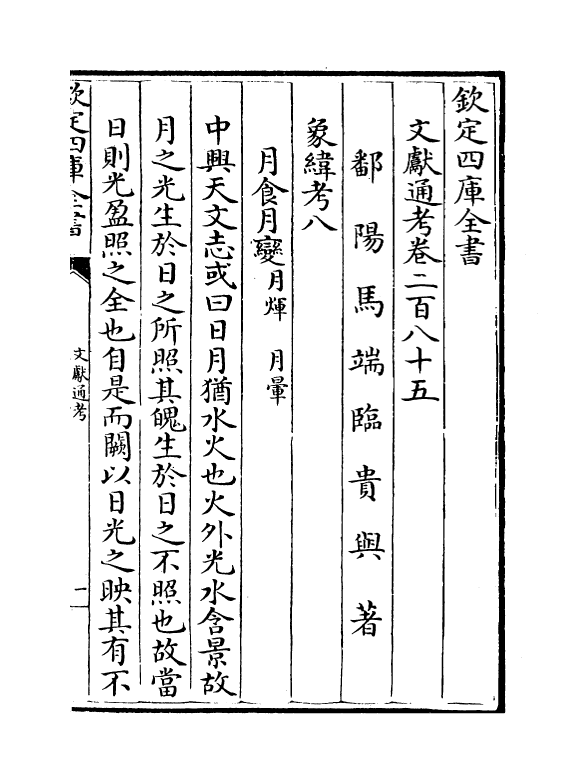 欽定四庫全書
文獻通考卷二百八十五
鄱陽馬端臨貴與著
象緯考八
月食月變月煇 月暈
中興天文志或曰日月猶水火也火外光水含景故
月之光生於日之所照其魄生於日之不照也故當
日則光盈照之全也自是而闕以日光之映其有不
欽定四庫全書
文獻通考
二